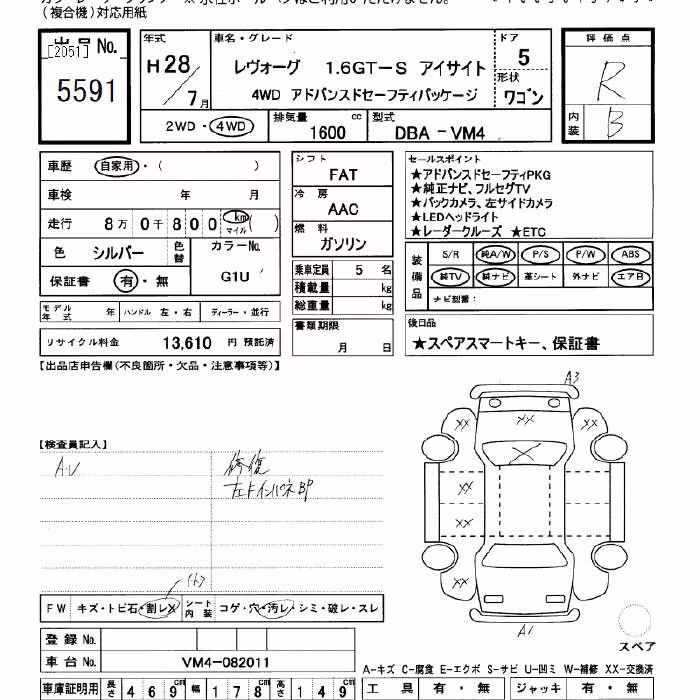 (複合機)対応用紙
出品No.
[2051]
5591
年式
H28/7月
車名・グレード
レヴォーグ 1.6GT-S アイサイト
4WD アドバンスドセーフティパッケージ
ドア
5
形状
ワゴン
評価点
R
内装
B
2WD・4WD
排気量 1600 cc
型式 DBA-VM4
車歴 自家用・( )
車検 年 月
走行 8万0千800 km マイル ( )
色 シルバー 色替
カラーNo.
G1U
保証書 有・無
シフト
FAT
冷房
AAC
燃料
ガソリン
乗車定員 5 名
積載量 kg
総重量 kg
セールスポイント
★アドバンスドセーフティPKG
★純正ナビ、フルセグTV
★バックカメラ、左サイドカメラ
★LEDヘッドライト
★レーダークルーズ ★ETC
装備品
S/R 純A/W P/S P/W ABS
純TV 純ナビ 革シート 外ナビ エアB
ナビ型番:
モデル年式 年 ハンドル 左・右 ディーラー・並行
リサイクル料金 13,610 円 預託済
書類期限
月 日
後日品
★スペアスマートキー、保証書
【出品店申告欄(不良箇所・欠品・注意事項等)】
【検査員記入】
A.U
修復
左FインパネBP
A3
XX
XX
XX
X
XX
XX
XX
XX
A1
スペア
FW キズ・トビ石・割レX シート内装 コゲ・穴・汚レ・シミ・破レ・スレ
登録No.
車台No. VM4-082011
A-キズ C-腐食 E-エクボ S-サビ U-凹ミ W-補修 XX-交換済
車庫証明用 長さ 469cm 幅 178cm 高さ 149cm
工具 有・無 ジャッキ 有・無